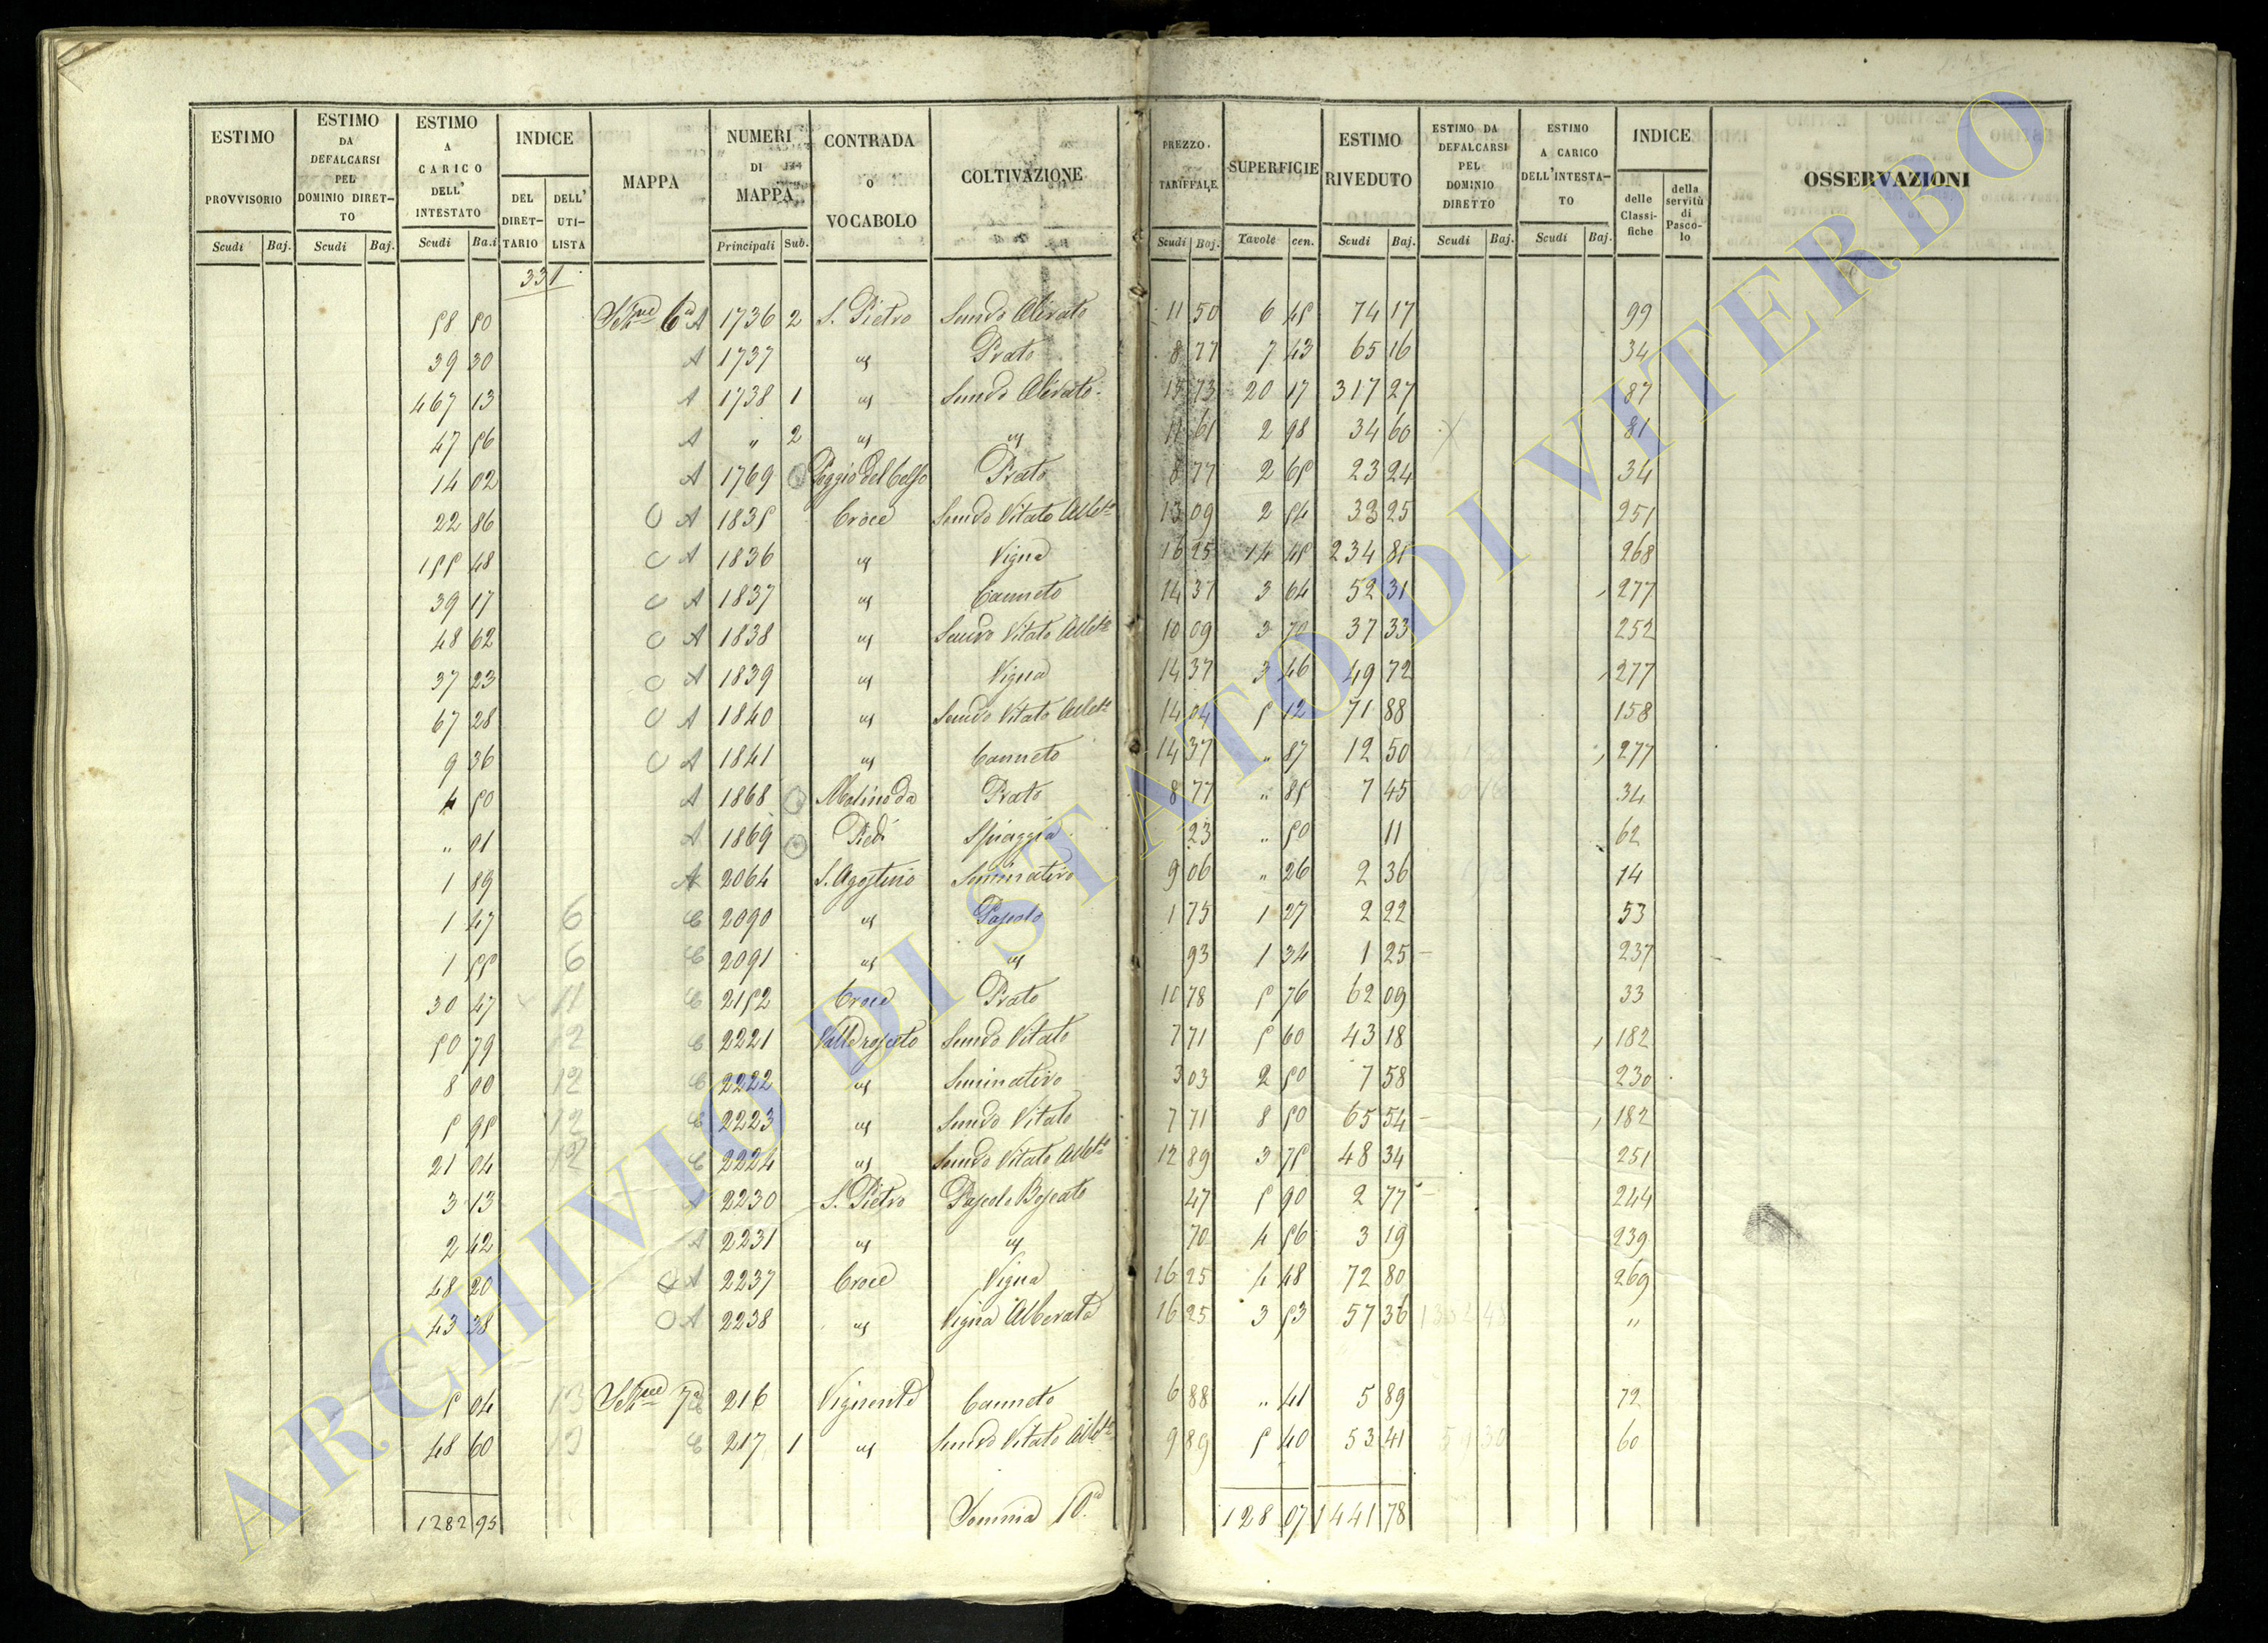 ESTIMO PROVVISORIO Scudi Baj.
ESTIMO DA DEFALCARSI PEL DOMINIO DIRET-TO Scudi Baj.
ESTIMO A CARICO DELL' INTESTATO Scudi Ba.i
INDICE DEL DIRET-TARIO DELL' UTI-LISTA
MAPPA
NUMERI DI MAPPA Principali Sub.
CONTRADA O VOCABOLO
COLTIVAZIONE
PREZZO. TARIFFALE. Scudi Baj.
SUPERFICIE Tavole cen.
ESTIMO RIVEDUTO Scudi Baj.
ESTIMO DA DEFALCARSI PEL DOMINIO DIRETTO Scudi Baj.
ESTIMO A CARICO DELL'INTESTA-TO Scudi Baj.
INDICE delle Classi-fiche della servitù di Pasco-lo
OSSERVAZIONI
331
58 50 6a A 1736 2 S. Pietro Semvo Olivato 11 50 6 45 74 17 99
39 30 A 1737 " Prato 8 77 7 43 65 16 34
467 13 A 1738 1 " Semvo Olivato 15 73 20 17 317 27 87
47 56 A " 2 " " 11 61 2 98 34 60 81
14 02 A 1769 Poggio del Celso Prato 8 77 2 65 23 24 34
22 86 O A 1835 Croce Semvo Vitato Albto 13 09 2 54 33 25 251
155 48 O A 1836 " Vigna 16 25 14 45 234 81 268
39 17 O A 1837 " Canneto 14 37 3 64 52 31 277
48 62 O A 1838 " Semvo Vitato Albto 10 09 3 70 37 33 252
37 23 O A 1839 " Vigna 14 37 3 46 49 72 277
67 28 O A 1840 " Semvo Vitato Albto 14 04 5 12 71 88 158
9 36 O A 1841 " Canneto 14 37 " 87 12 50 277
4 50 A 1868 Molino da Prato 8 77 " 85 7 45 34
" 01 A 1869 Piedi Spiaggia 23 " 50 11 62
1 89 A 2064 S. Agostino Seminativo 9 06 " 26 2 36 14
1 47 6 C 2090 " Pascolo 1 75 1 27 2 22 53
1 55 6 C 2091 " " 93 1 34 1 25 237
30 47 11 C 2152 Croce Prato 10 78 5 76 62 09 33
50 79 12 C 2221 Semvo Vitato 7 71 5 60 43 18 182
8 00 12 C 2222 " Seminativo 3 03 2 50 7 58 230
5 95 12 C 2223 " Semvo Vitato 7 71 8 50 65 54 182
21 04 12 C 2224 " Semvo Vitato Albto 12 89 3 75 48 34 251
3 13 A 2230 S. Pietro Pascolo Boscato 47 5 90 2 77 244
2 42 A 2231 " " 70 4 56 3 19 239
48 20 A 2237 Croce Vigna 16 25 4 48 72 80 269
43 38 O A 2238 " Vigna Alberata 16 25 3 53 57 36 "
5 04 13 7a C 216 Canneto 6 88 " 41 5 89 72
48 60 13 C 217 1 " Semvo Vitato Albto 9 89 5 40 53 41 60
1282 95 Somma 128 07 1441 78
ARCHIVIO DI STATO DI VITERBO